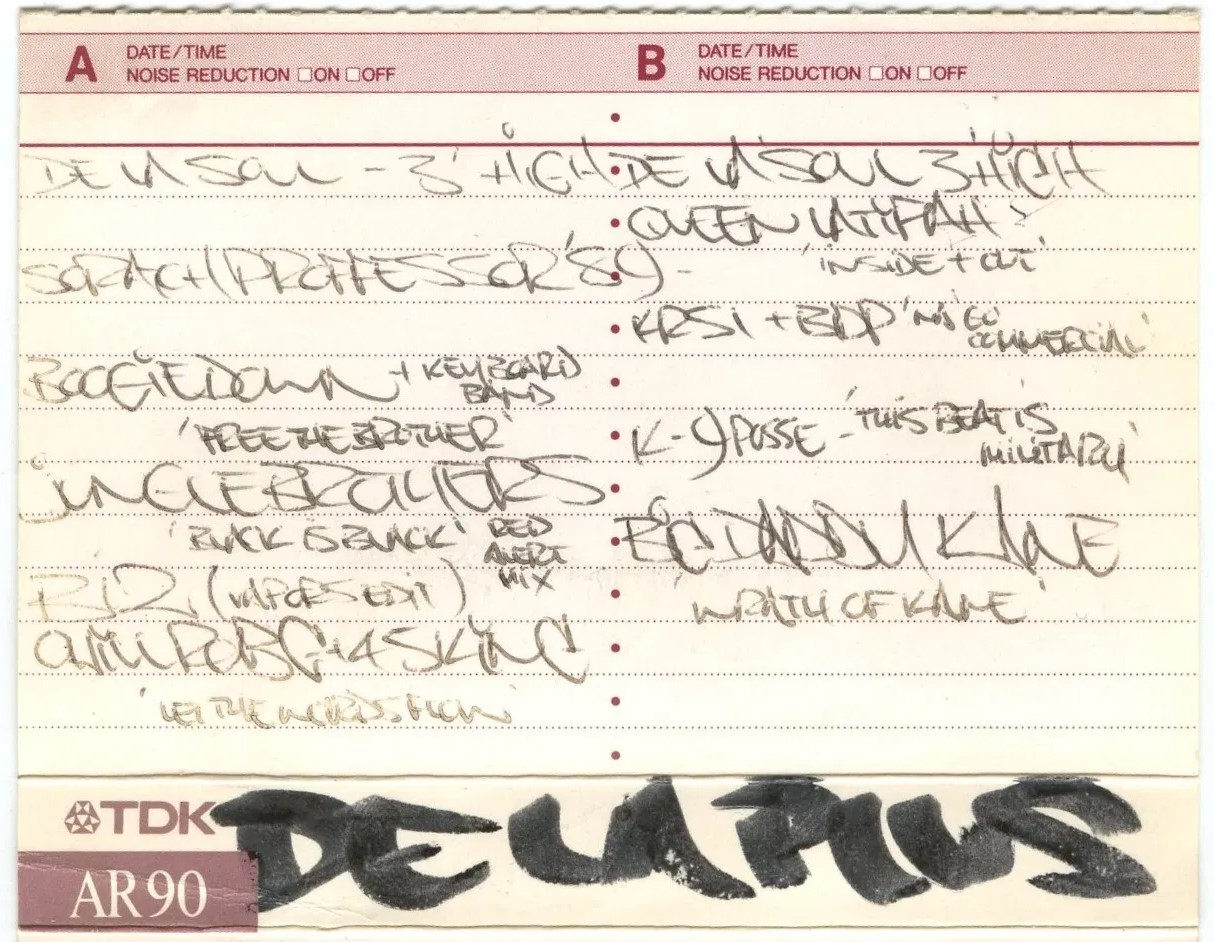 A DATE/TIME
NOISE REDUCTION □ON □OFF
DE LA SOUL - 3' HIGH
SCRATCH (PROFESSOR '89) -
BOOGIE DOWN + KEYBOARD
BAND
'FREE THE BROTHER'
JUNGLE BROTHERS
'BLACK IS BLACK' RED
ALERT
MIX
BIZ (VAPORS EDIT)
CHILL ROB G + 45 KING
'LET THE WORDS FLOW'
B DATE/TIME
NOISE REDUCTION □ON □OFF
DE LA SOUL 3 HIGH
QUEEN LATIFAH -
'INSIDE + OUT'
KRS1 + BDP 'NO GO
COMMERCIAL'
K-9 POSSE - 'THIS BEAT IS
MILITARY'
BIG DADDY KANE
'WRATH OF KANE'
TDK DE LA PLUS
AR 90